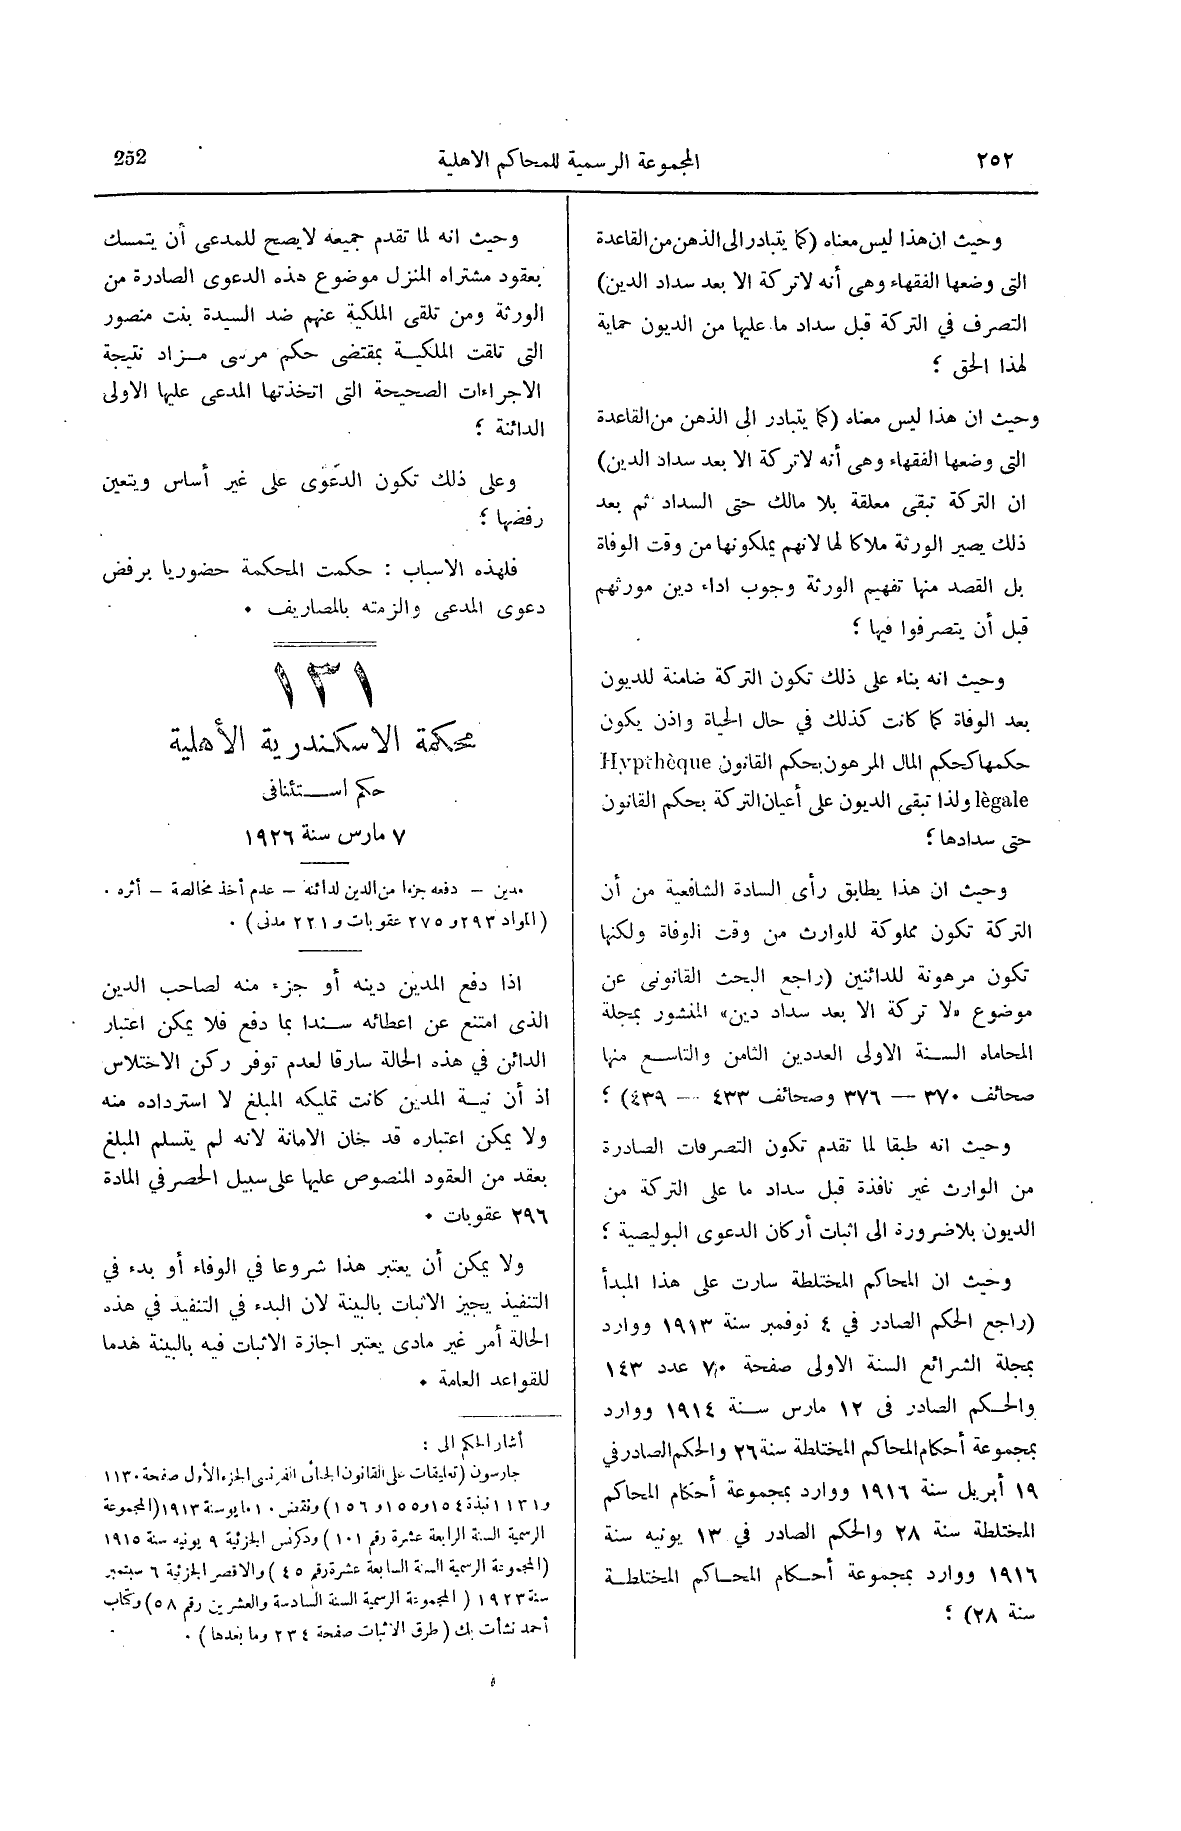 ٢٥٢
المجموعة الرسمية للمحاكم الاهلية
252
وحيث ان هذا ليس معناه (كما يتبادر الى الذهن من القاعدة
التى وضعها الفقهاء وهى أنه لا تركة الا بعد سداد الدين)
التصرف في التركة قبل سداد ما عليها من الديون حماية
لهذا الحق ؛
وحيث ان هذا ليس معناه (كما يتبادر الى الذهن من القاعدة
التى وضعها الفقهاء وهى أنه لا تركة الا بعد سداد الدين)
ان التركة تبقى معلقة بلا مالك حتى السداد ثم بعد
ذلك يصير الورثة ملاكا لها لانهم يملكونها من وقت الوفاة
بل القصد منها تفهيم الورثة وجوب اداء دين مورثهم
قبل أن يتصرفوا فيها ؛
وحيث انه بناء على ذلك تكون التركة ضامنة للديون
بعد الوفاة كما كانت كذلك في حال الحياة واذن يكون
حكمها كحكم المال المرهون بحكم القانون Hypthèque
lègale ولذا تبقى الديون على أعيان التركة بحكم القانون
حتى سدادها ؛
وحيث ان هذا يطابق رأى السادة الشافعية من أن
التركة تكون مملوكة للوارث من وقت الوفاة ولكنها
تكون مرهونة للدائنين (راجع البحث القانونى عن
موضوع «لا تركة الا بعد سداد دين» المنشور بمجلة
المحاماه السنة الاولى العددين الثامن والتاسع منها
صحائف ٣٧٠ — ٣٧٦ وصحائف ٤٣٣ — ٤٣٩) ؛
وحيث انه طبقا لما تقدم تكون التصرفات الصادرة
من الوارث غير نافذة قبل سداد ما على التركة من
الديون بلا ضرورة الى اثبات أركان الدعوى البوليصية ؛
وحيث ان المحاكم المختلطة سارت على هذا المبدأ
(راجع الحكم الصادر في ٤ نوفمبر سنة ١٩١٣ ووارد
بمجلة الشرائع السنة الاولى صفحة ٧٠ عدد ١٤٣
والحكم الصادر فى ١٢ مارس سنة ١٩١٤ ووارد
بمجموعة أحكام المحاكم المختلطة سنة ٢٦ والحكم الصادر في
١٩ أبريل سنة ١٩١٦ ووارد بمجموعة أحكام المحاكم
المختلطة سنة ٢٨ والحكم الصادر في ١٣ يونيه سنة
١٩١٦ ووارد بمجموعة أحكام المحاكم المختلطة
سنة ٢٨) ؛
وحيث انه لما تقدم جميعه لا يصح للمدعى أن يتمسك
بعقود مشتراه المنزل موضوع هذه الدعوى الصادرة من
الورثة ومن تلقى الملكية عنهم ضد السيدة بنت منصور
التى تلقت الملكية بمقتضى حكم مرسى مزاد نتيجة
الاجراءات الصحيحة التى اتخذتها المدعى عليها الاولى
الدائنة ؛
وعلى ذلك تكون الدعوى على غير أساس ويتعين
رفضها ؛
فلهذه الاسباب : حكمت المحكمة حضوريا برفض
دعوى المدعى والزمته بالمصاريف ٠
١٣١
محكمة الاسكندرية الأهلية
حكم استئنافى
٧ مارس سنة ١٩٢٦
مدين — دفعه جزءا من الدين لدائنه — عدم أخذ مخالصة — أثره .
(المواد ٢٩٣ و ٢٧٥ عقوبات و ٢٢١ مدنى) .
اذا دفع المدين دينه أو جزء منه لصاحب الدين
الذى امتنع عن اعطائه سندا بما دفع فلا يمكن اعتبار
الدائن في هذه الحالة سارقا لعدم توفر ركن الاختلاس
اذ أن نية المدين كانت تمليكه المبلغ لا استرداده منه
ولا يمكن اعتباره قد خان الامانة لانه لم يتسلم المبلغ
بعقد من العقود المنصوص عليها على سبيل الحصر في المادة
٢٩٦ عقوبات ٠
ولا يمكن أن يعتبر هذا شروعا في الوفاء أو بدء في
التنفيذ يجيز الاثبات بالبينة لان البدء في التنفيذ في هذه
الحالة أمر غير مادى يعتبر اجازة الاثبات فيه بالبينة هدما
للقواعد العامة ٠
أشار الحكم الى :
جارسون (تعليقات على القانون الجنائى الفرنسى الجزء الأول صفحة ١١٣٠
و ١١٣١ نبذة ١٥٤ و ١٥٥ و ١٥٦) ونقض ١٠ مايو سنة ١٩١٣ (المجموعة
الرسمية السنة الرابعة عشرة رقم ١٠١) ودكرنس الجزئية ٩ يونيه سنة ١٩١٥
(المجموعة الرسمية السنة السابعة عشرة رقم ٤٥) والاقصر الجزئية ٦ سبتمبر
سنة ١٩٢٣ (المجموعة الرسمية السنة السادسة والعشرين رقم ٥٨) وكتاب
أحمد نشأت بك (طرق الاثبات صفحة ٢٣٤ وما بعدها) .